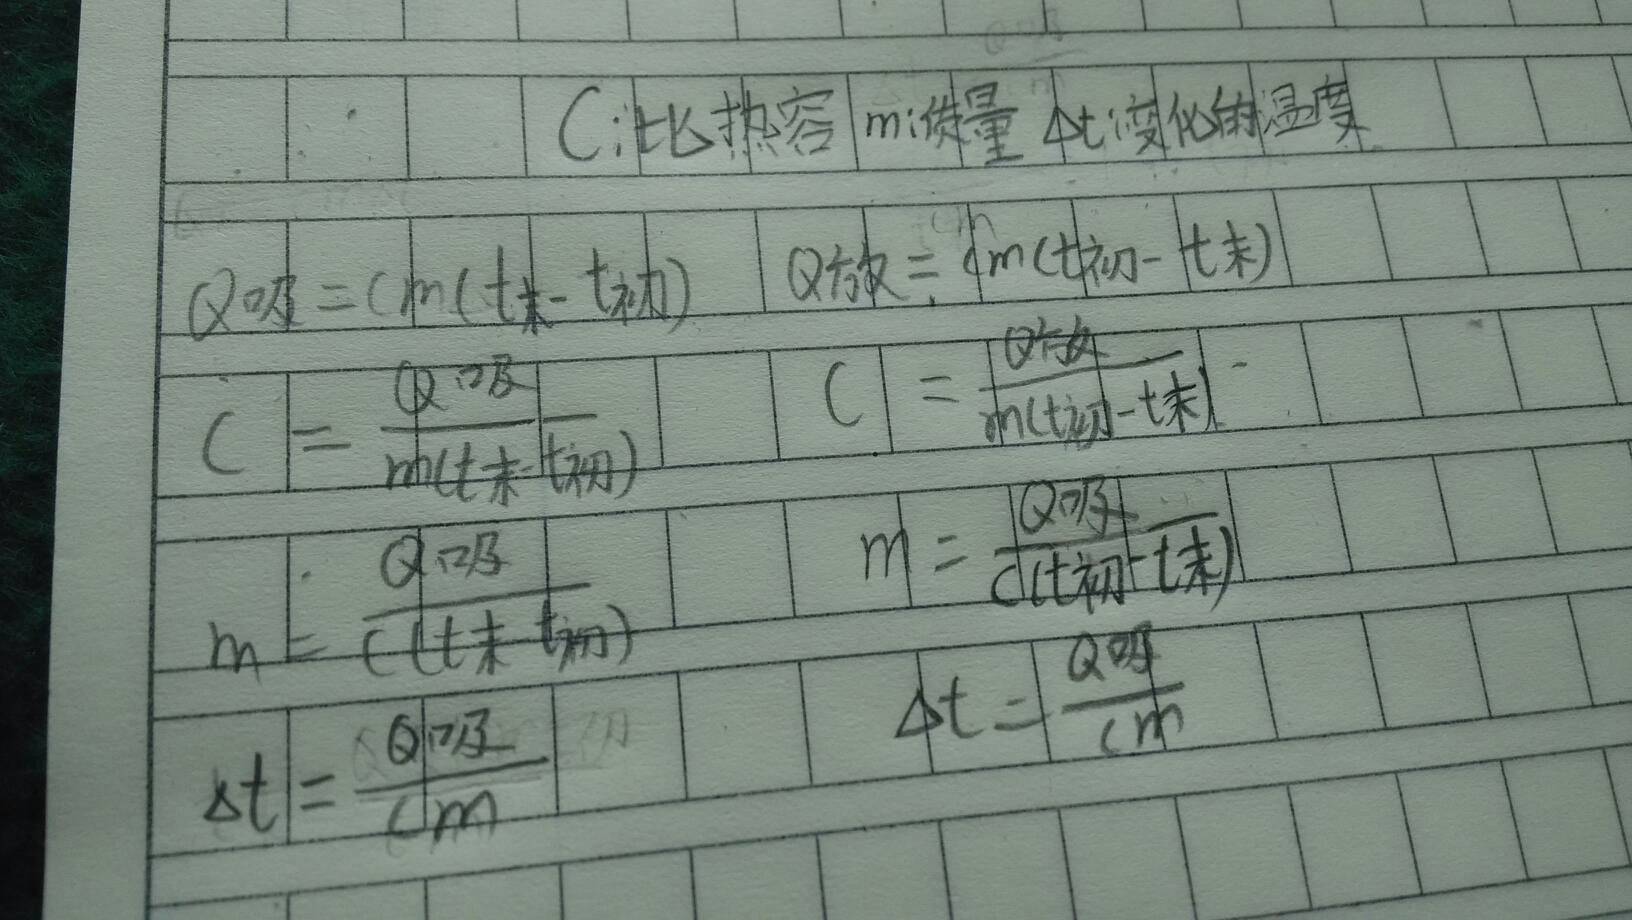 C:比热容 m:质量 Δt:变化的温度
Q吸=Cm(t末-t初) Q放=Cm(t初-t末)
C=Q吸/m(t末-t初) C=Q放/m(t初-t末)
m=Q吸/C(t末-t初) m=Q吸/C(t初-t末)
Δt=Q吸/Cm Δt=Q吸/Cm